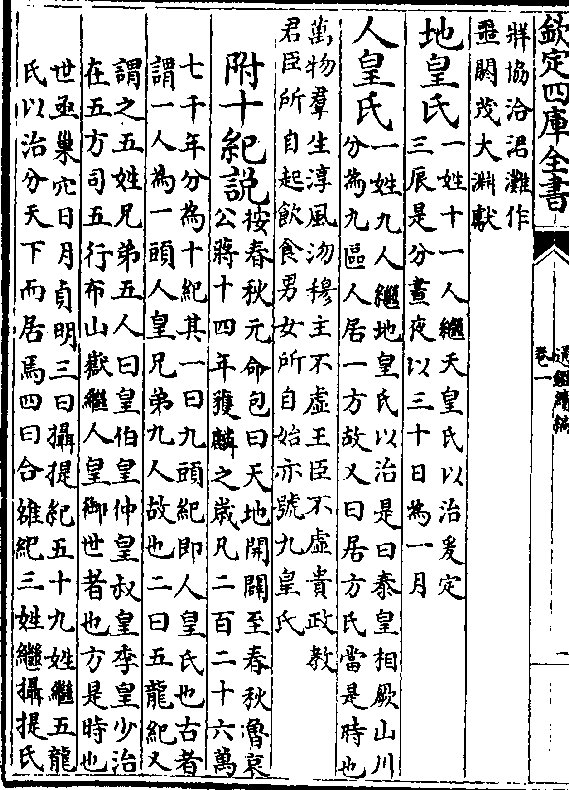 欽定四庫全書
通鑑續編
卷一
一
牂協洽涒灘作
噩閹茂大淵獻
地皇氏
一姓十一人繼天皇氏以治爰定
三辰是分晝夜以三十日為一月
人皇氏
一姓九人繼地皇氏以治是曰泰皇相厥山川
分為九區人居一方故又曰居方氏當是時也
萬物羣生淳風沕穆主不虛王臣不虛貴政教
君臣所自起飲食男女所自始亦號九皇氏
附十紀說
按春秋元命包曰天地開闢至春秋魯哀
公蔣十四年獲麟之歲凡二百二十六萬
七千年分為十紀其一曰九頭紀即人皇氏也古者
謂一人為一頭人皇兄弟九人故也二曰五龍紀又
謂之五姓兄弟五人曰皇伯皇仲皇叔皇季皇少治
在五方司五行布山嶽繼人皇御世者也方是時也
世亟巢穴日月貞明三曰攝提紀五十九姓繼五龍
氏以治分天下而居焉四曰合雒紀三姓繼攝提氏